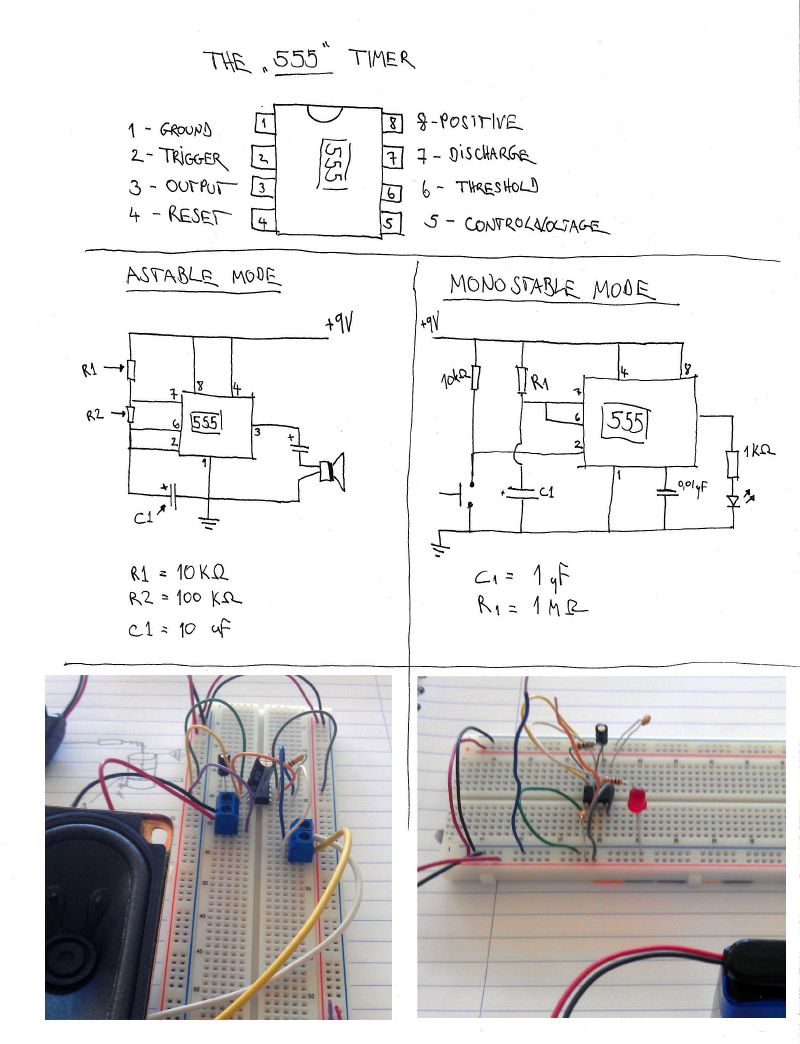 THE „555" TIMER
1 - GROUND
2 - TRIGGER
3 - OUTPUT
4 - RESET
1
2
3
4
555
8
7
6
5
8-POSITIVE
7 - DISCHARGE
6 - THRESHOLD
5 - CONTROL VOLTAGE
ASTABLE MODE
+9V
R1
R2
7
8
4
6
2
3
1
555
+
+
C1
R1 = 10KΩ
R2 = 100 KΩ
C1 = 10 uF
MONOSTABLE MODE
+9V
10kΩ
R1
4
8
7
6
2
555
1
1KΩ
+
C1
0,01µF
C1 = 1 µF
R1 = 1MΩ